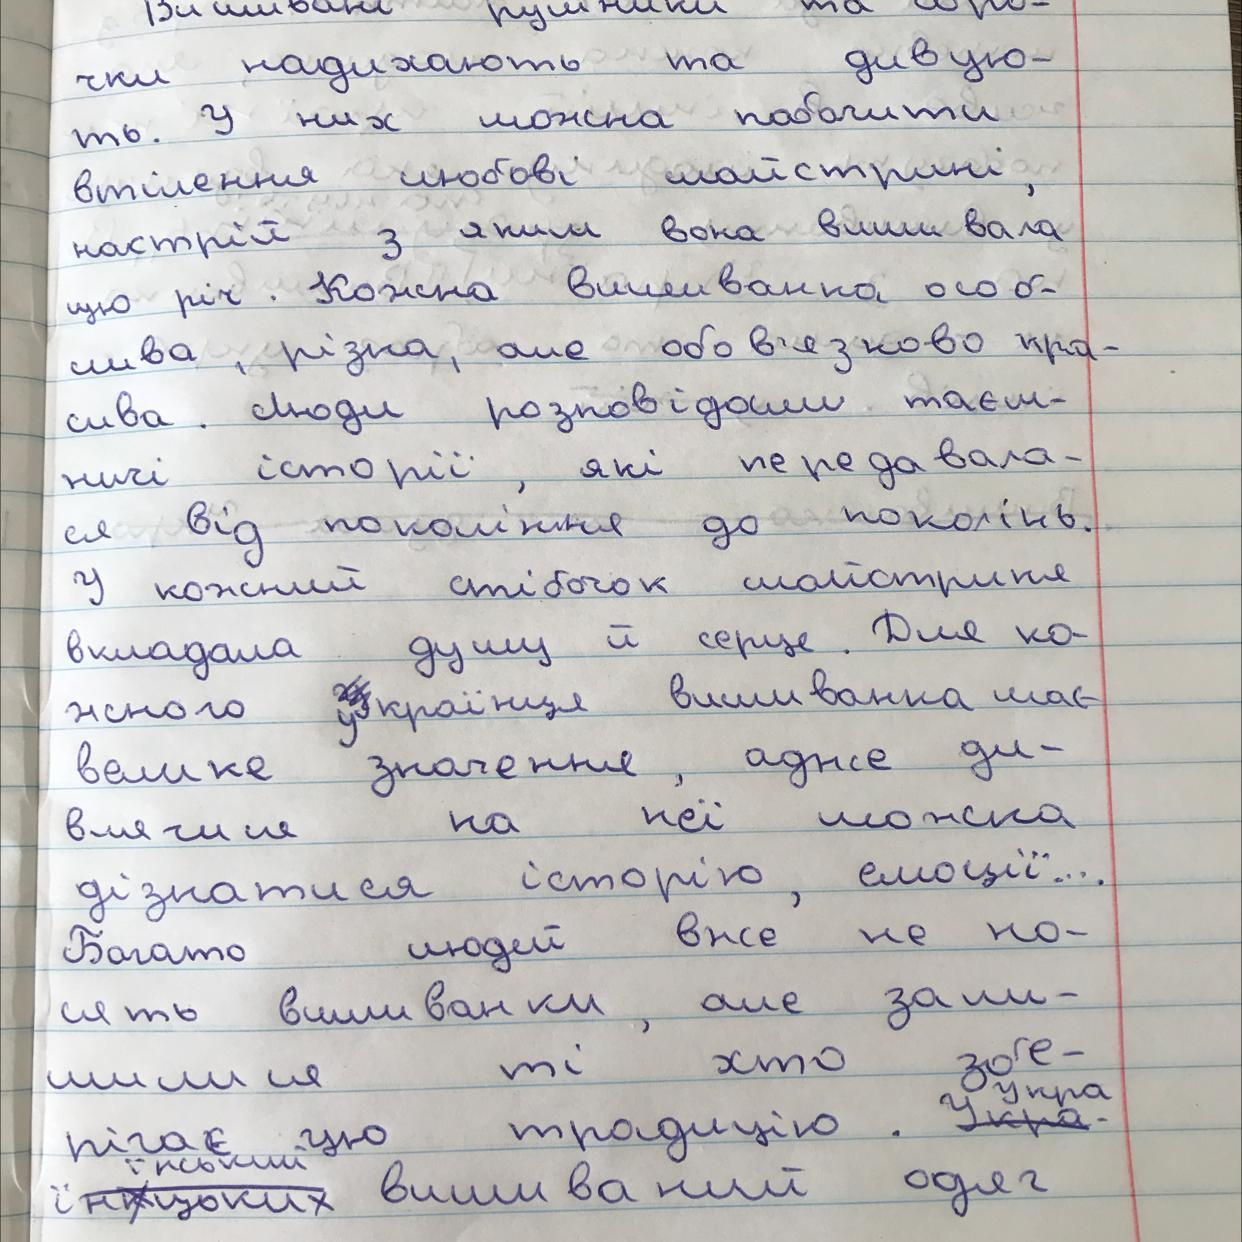 Вишивані рушники та соро-
чки надихають та дивую-
ть. У них можна побачити
втілення любові майстрині,
настрій з яким вона вишивала
цю річ. Кожна вишиванка особ-
лива, різна, але обов'язково кра-
сива. Люди розповідали таєм-
ничі історії, які передавала-
ся від покоління до поколінь.
У кожний стібочок майстриня
вкладала душу й серце. Для ко-
жного українця вишиванка має
велике значення, адже ди-
влячися на неї можна
дізнатися історію, емоції...
Багато людей вже не но-
сять вишиванки, але зали-
шилися ті хто збе-
укра
рігає цю традицію. Укра-
їнський
їнцоких вишиваний одяг